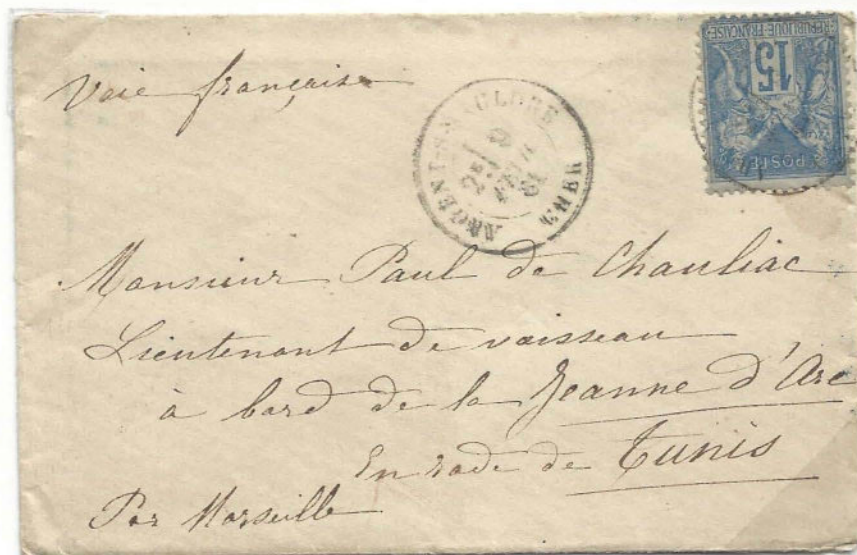 Voie française
ARGENT-S-SAULDRE
2E/ 9
FEVR
81
CHER
REPUBLIQUE FRANÇAISE
15
POSTES
Monsieur Paul de Chauliac
Lieutenant de vaisseau
à bord de la Jeanne d'Arc
En rade de Tunis
Par Marseille